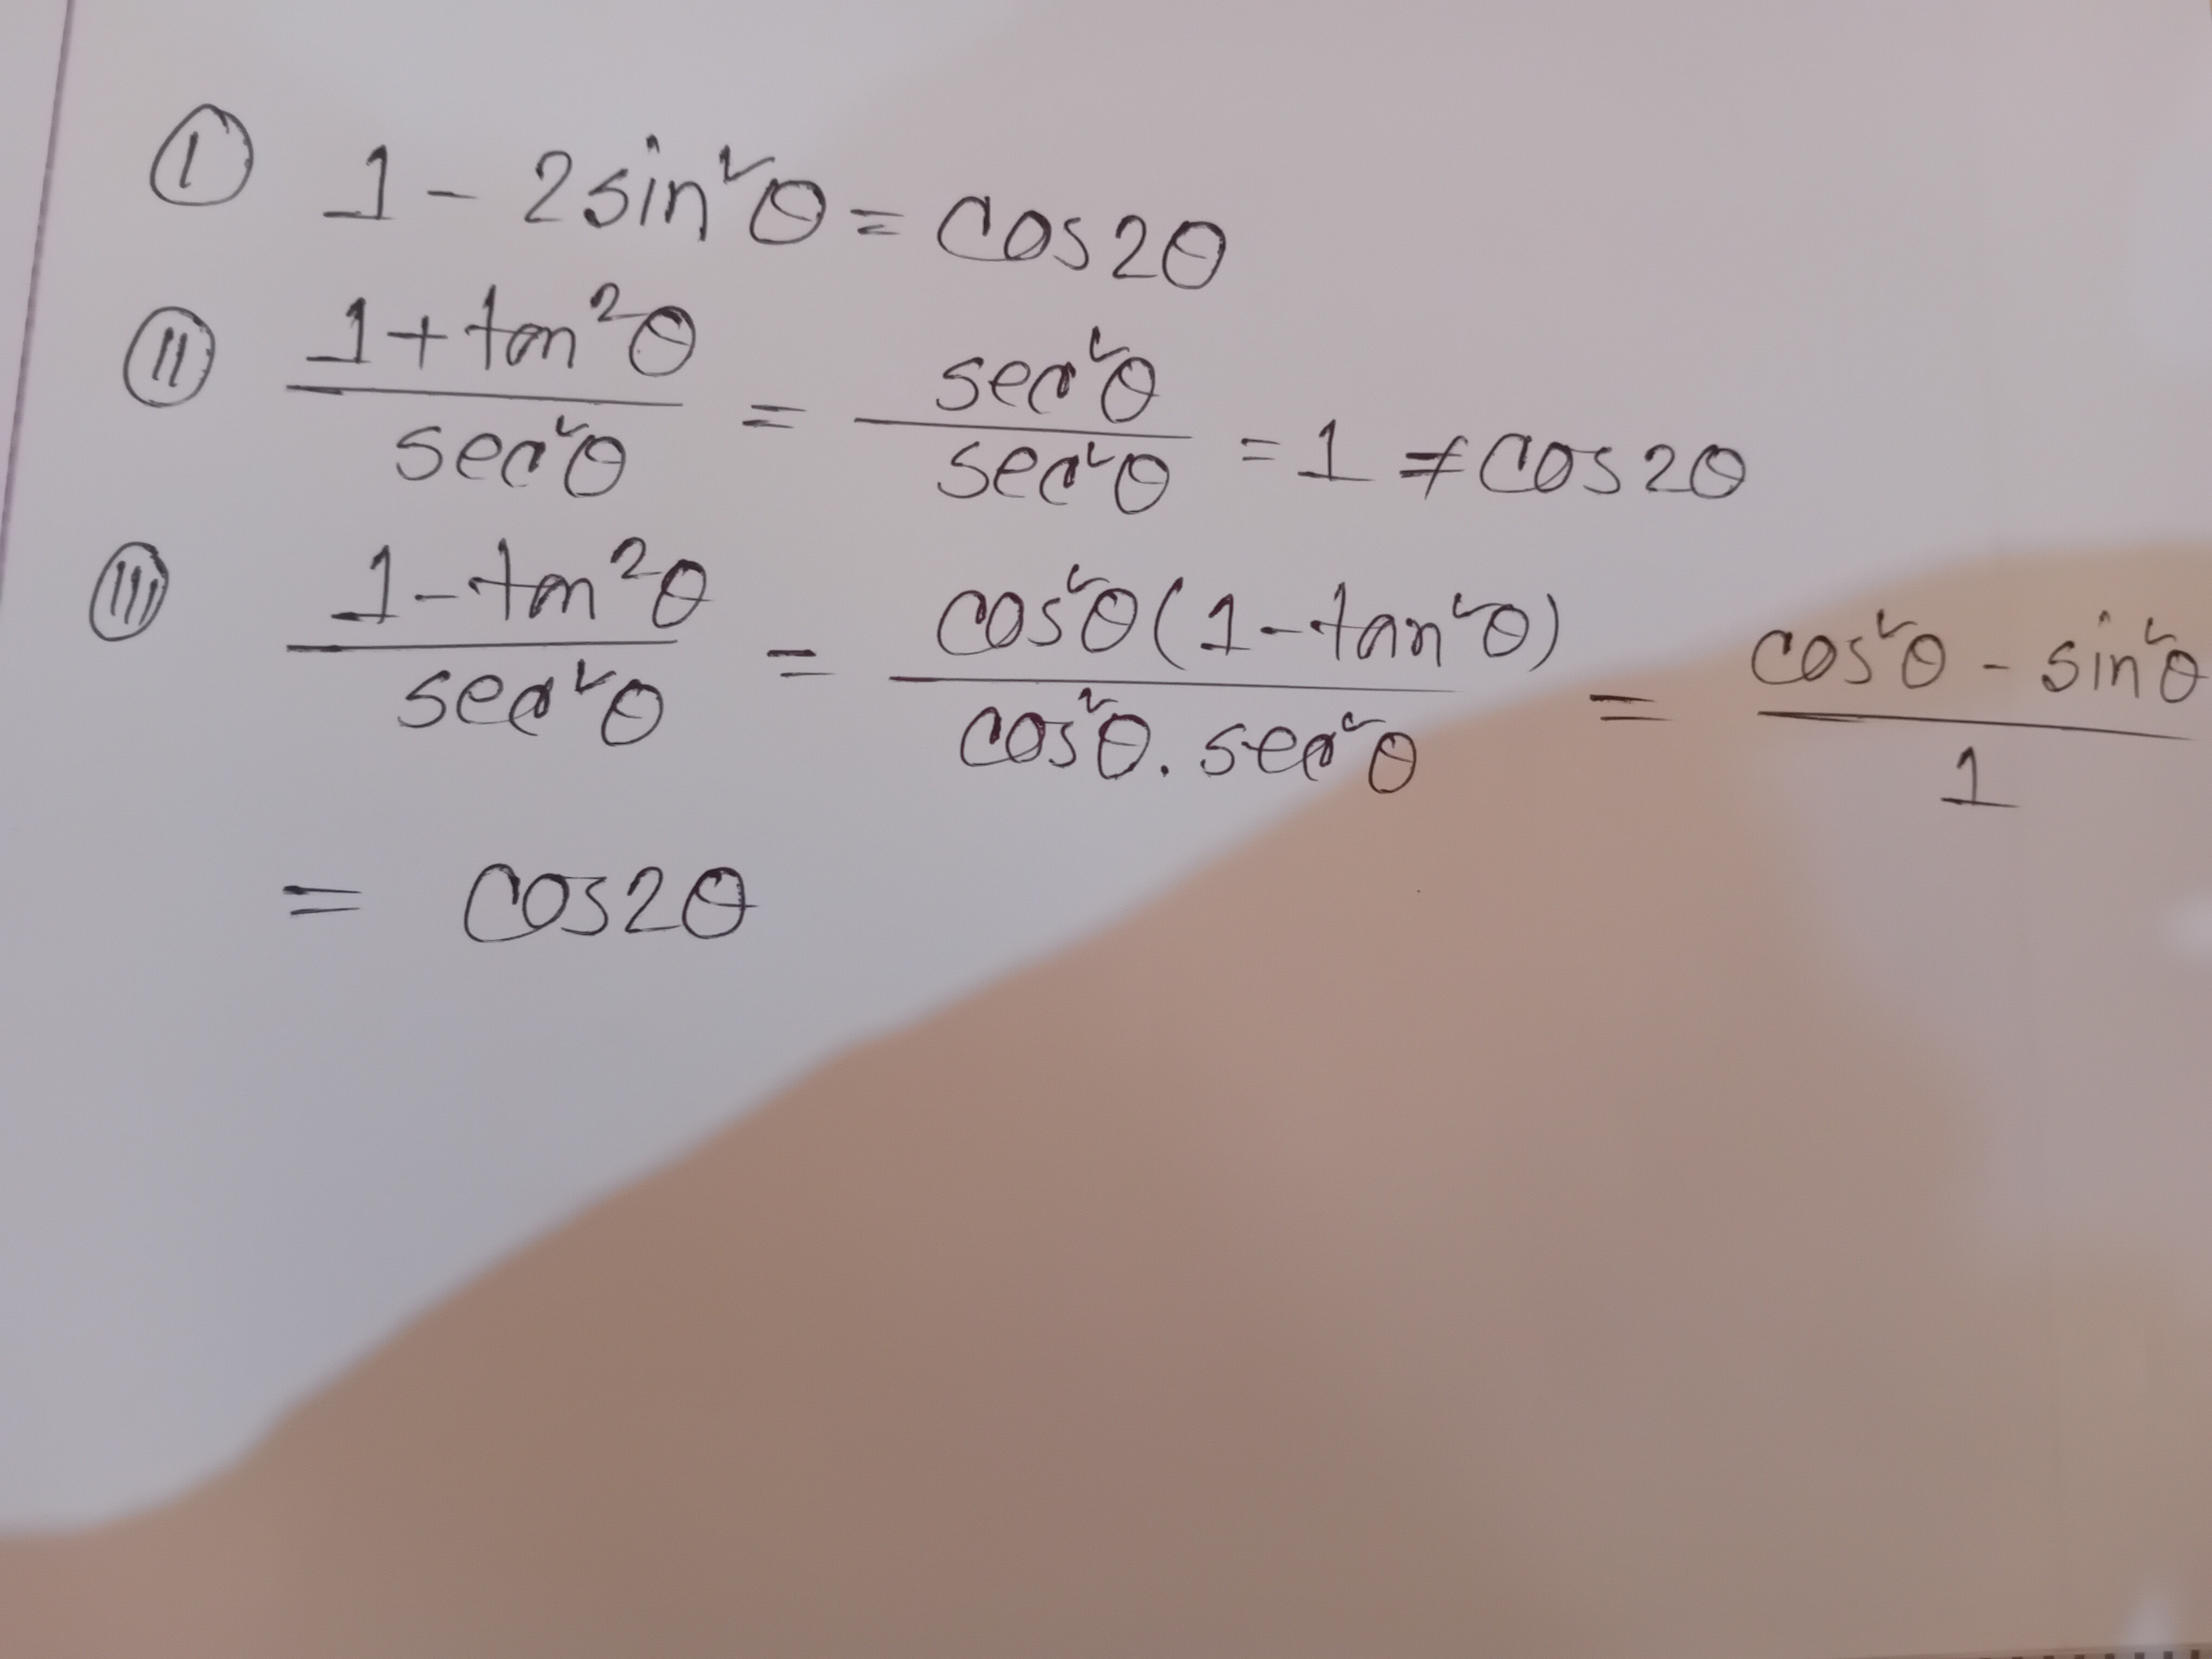 Ⓘ 1 - 2sin²θ = cos2θ
Ⓘⓘ (1 + tan²θ)/(sec²θ) = (sec²θ)/(sec²θ) = 1 ≠ cos2θ
Ⓘⓘⓘ (1 - tan²θ)/(sec²θ) = (cos²θ(1 - tan²θ))/(cos²θ . sec²θ) = (cos²θ - sin²θ)/1
= cos2θ